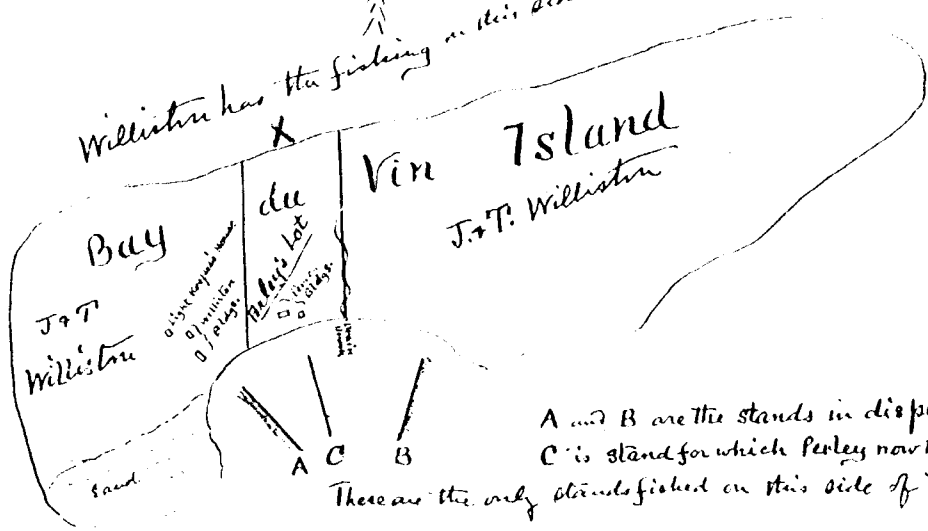 Williston has the fishing on this side
X
Bay du Vin Island
J. & T. Williston
J & T
Williston
Light Keeper's House
Williston
Bldgs.
Perley's Lot
Bldgs.
A C B
Sand
A and B are the stands in disp
C is stand for which Perley now
These are the only stands fished on this side of